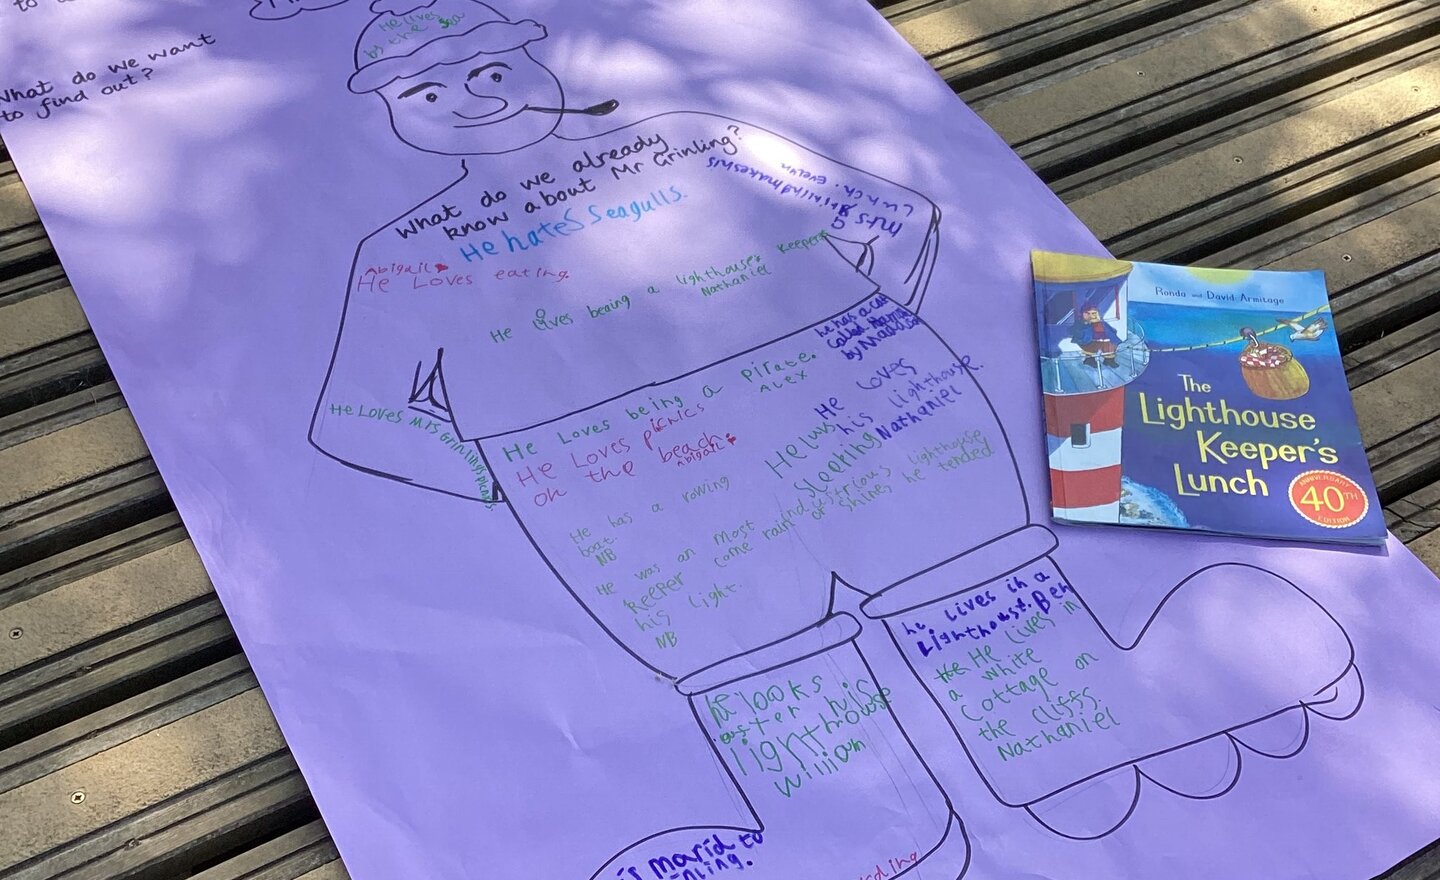 What do we want
to find out?
He lives
by the sea
What do we already
know about Mr Grinling?
He hates Seagulls.
Abigail
He Loves eating.
Mrs
Grinling makes his
Lunch. Evelyn
He loves being a lighthouse keeper
Nathaniel
he has a cat
called
by Maddison
He Loves Mrs Grinlings picnics
He Loves being a Pirate.
ALEX
He Loves picnics
on the beach.
Abigail
He loves
his lighthouse.
Nathaniel
He has a rowing
boat.
NB
He was an most industrious lighthouse
keeper come rain or shines he tended
his light.
NB
he lives in a
Lighthouse. Ben
He lives in
a white
Cottage on
the cliffs.
Nathaniel
he looks
after his
lighthouse
William
is marid to
Ronda and David Armitage
The
Lighthouse
Keeper's
Lunch
ANNIVERSARY
40TH
EDITION